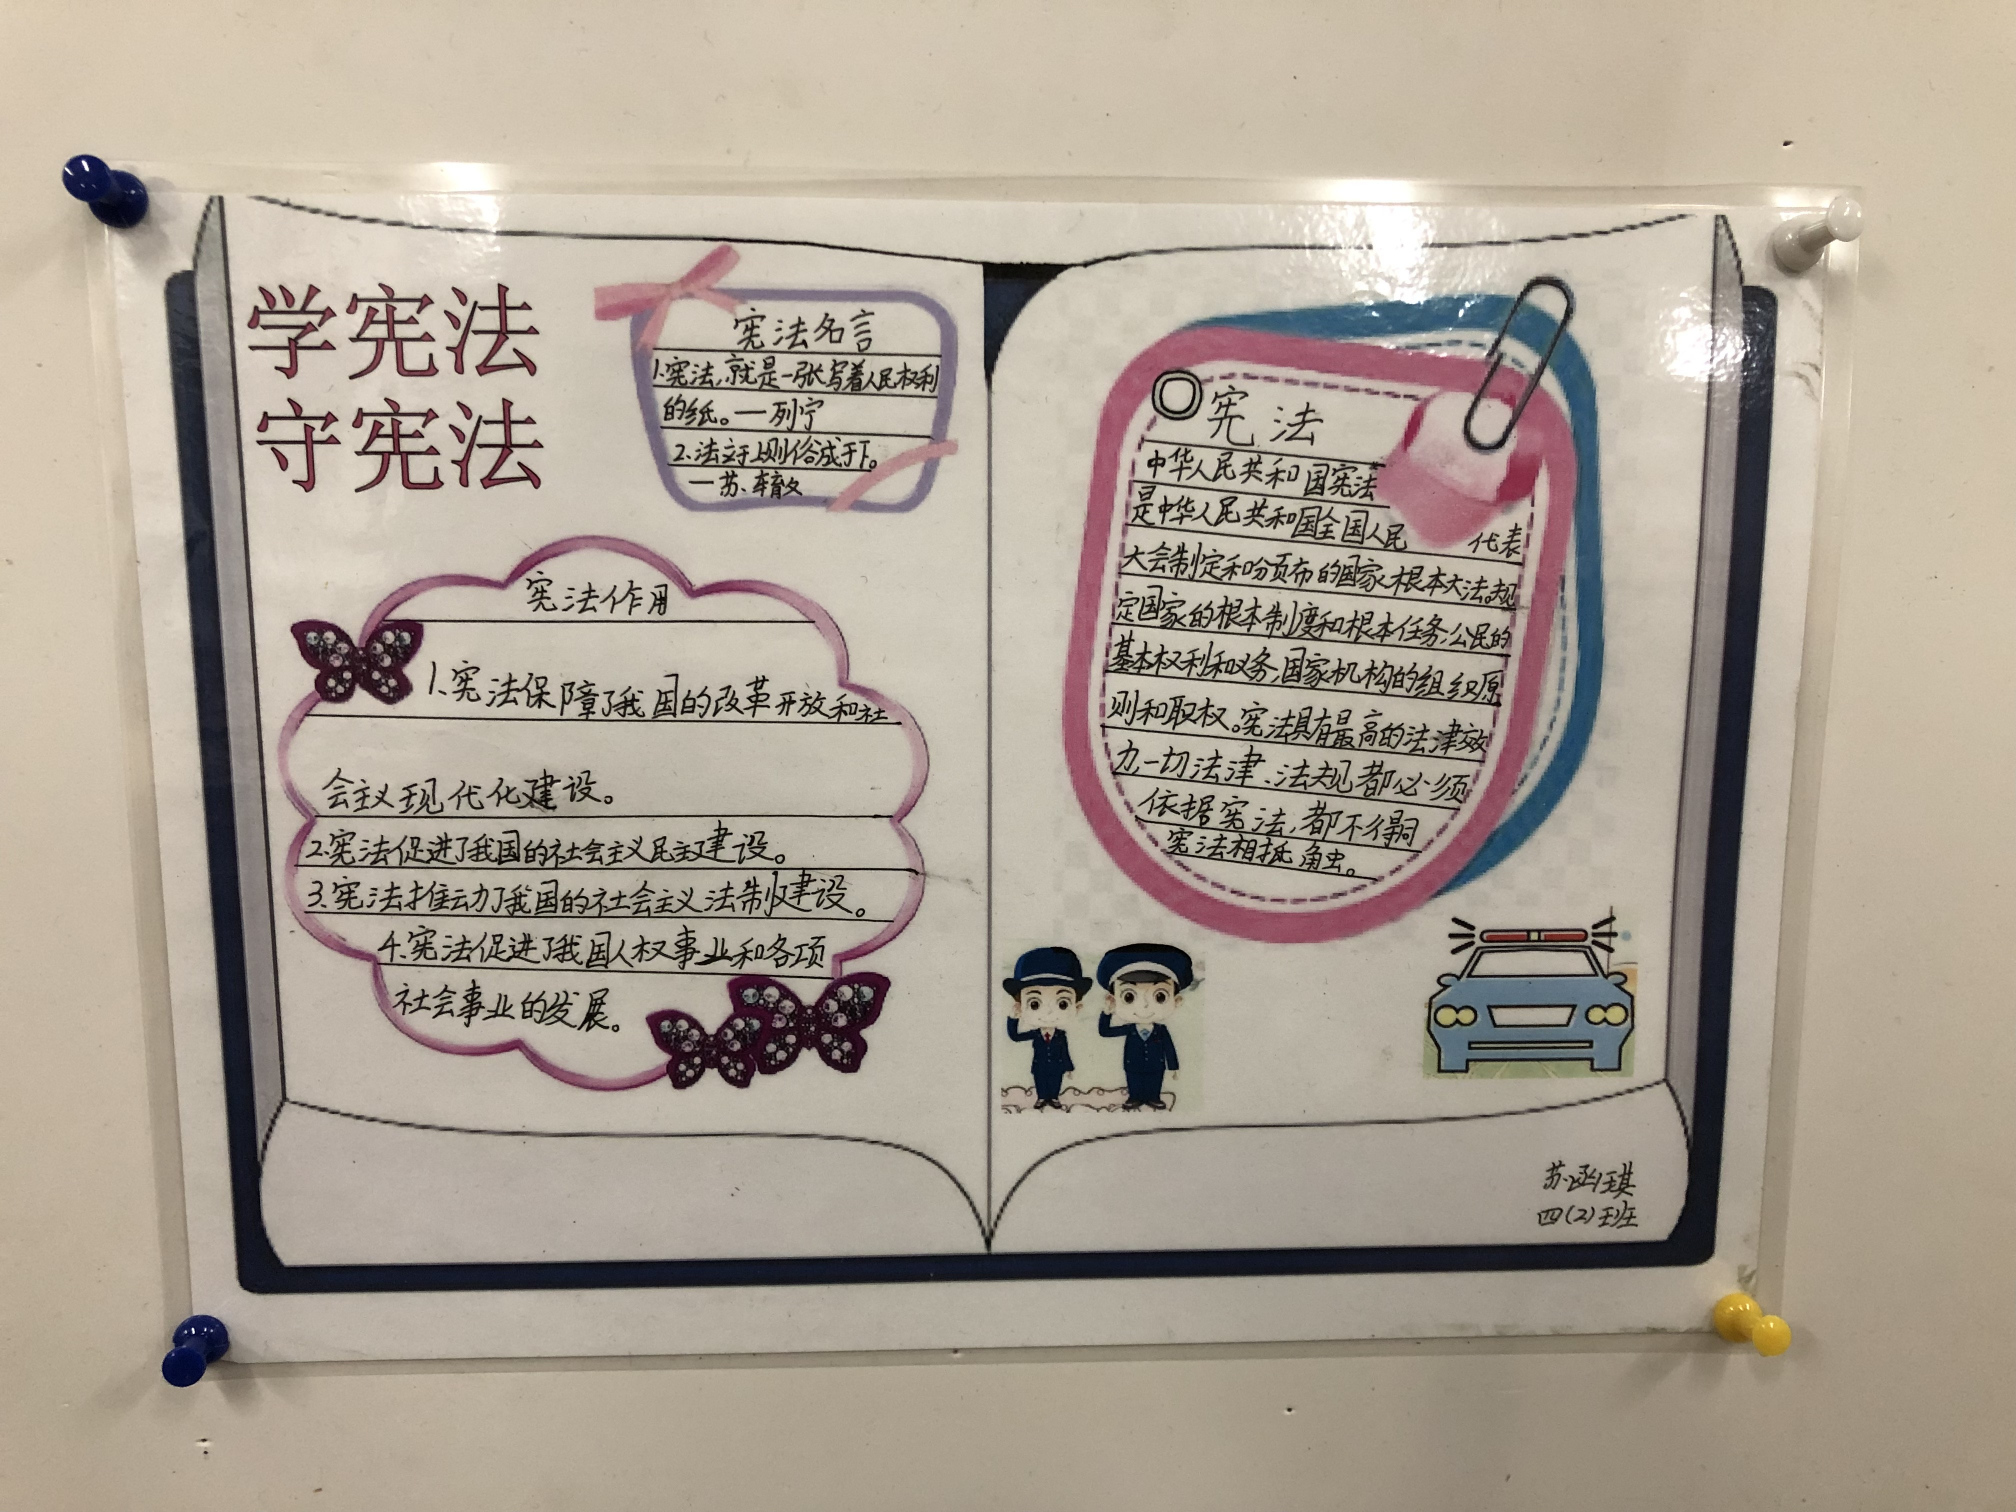 学宪法
守宪法
宪法名言
1.宪法,就是一张写着人民权利
的纸。一列宁
2.法立于上则俗成于下。
一苏、辙
宪法作用
1.宪法保障了我国的改革开放和社
会主义现代化建设。
2.宪法促进了我国的社会主义民主建设。
3.宪法推动了我国的社会主义法制建设。
4.宪法促进了我国人权事业和各项
社会事业的发展。
宪法
中华人民共和国宪法
是中华人民共和国全国人民 代表
大会制定和颁布的国家根本大法。规
定国家的根本制度和根本任务,公民的
基本权利和义务,国家机构的组织原
则和职权。宪法具有最高的法津效
力,一切法津、法规都必须
依据宪法,都不得同
宪法相抵触。
苏函琪
四(2)班